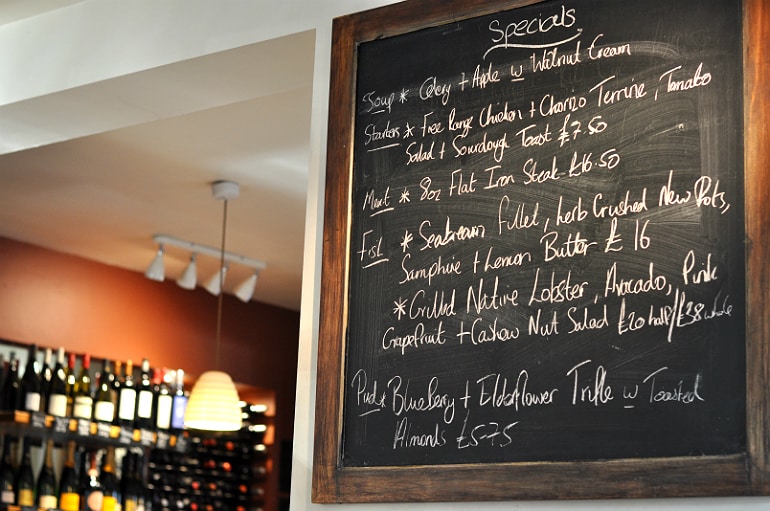 Specials
Soup * Celery + Apple w Walnut Cream
Starters * Free Range Chicken + Chorizo Terrine, Tomato
Salad + Sourdough Toast £7.50
Meat * 8oz Flat Iron Steak £16.50
Fish * Seabream fillet, herb Crushed New Pots,
Samphire + Lemon Butter £16
* Grilled Native Lobster, Avocado, Pink
Grapefruit + Cashew Nut Salad £20 half/£38 whole
Pud * Blueberry + Elderflower Trifle w Toasted
Almonds £5-75